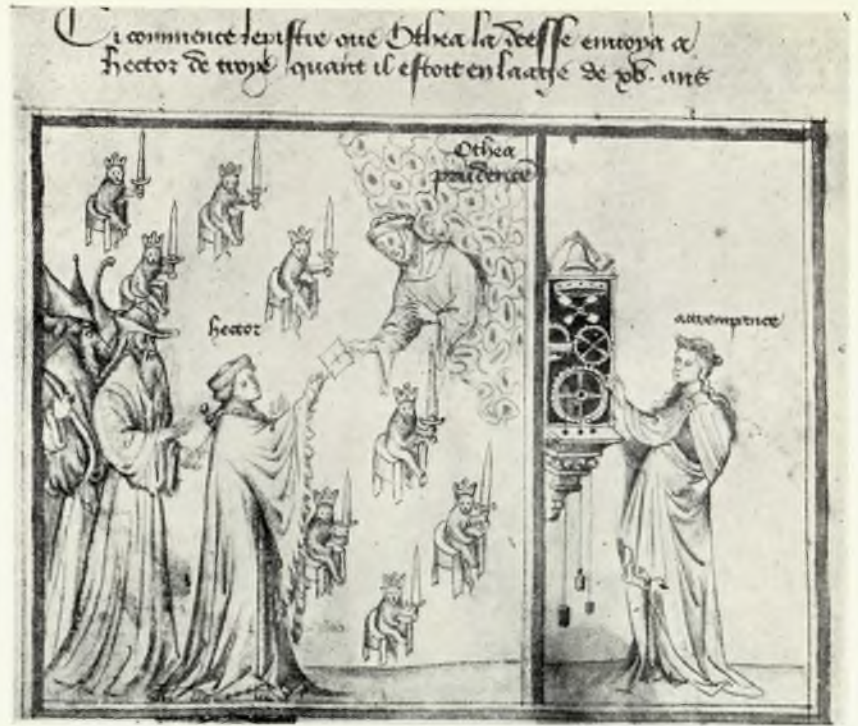 Ci commence lepistre que Othea la deesse envoya a
hector de troye quant il estoit en laage de xv. ans
Othea
prudence
hector
attempance